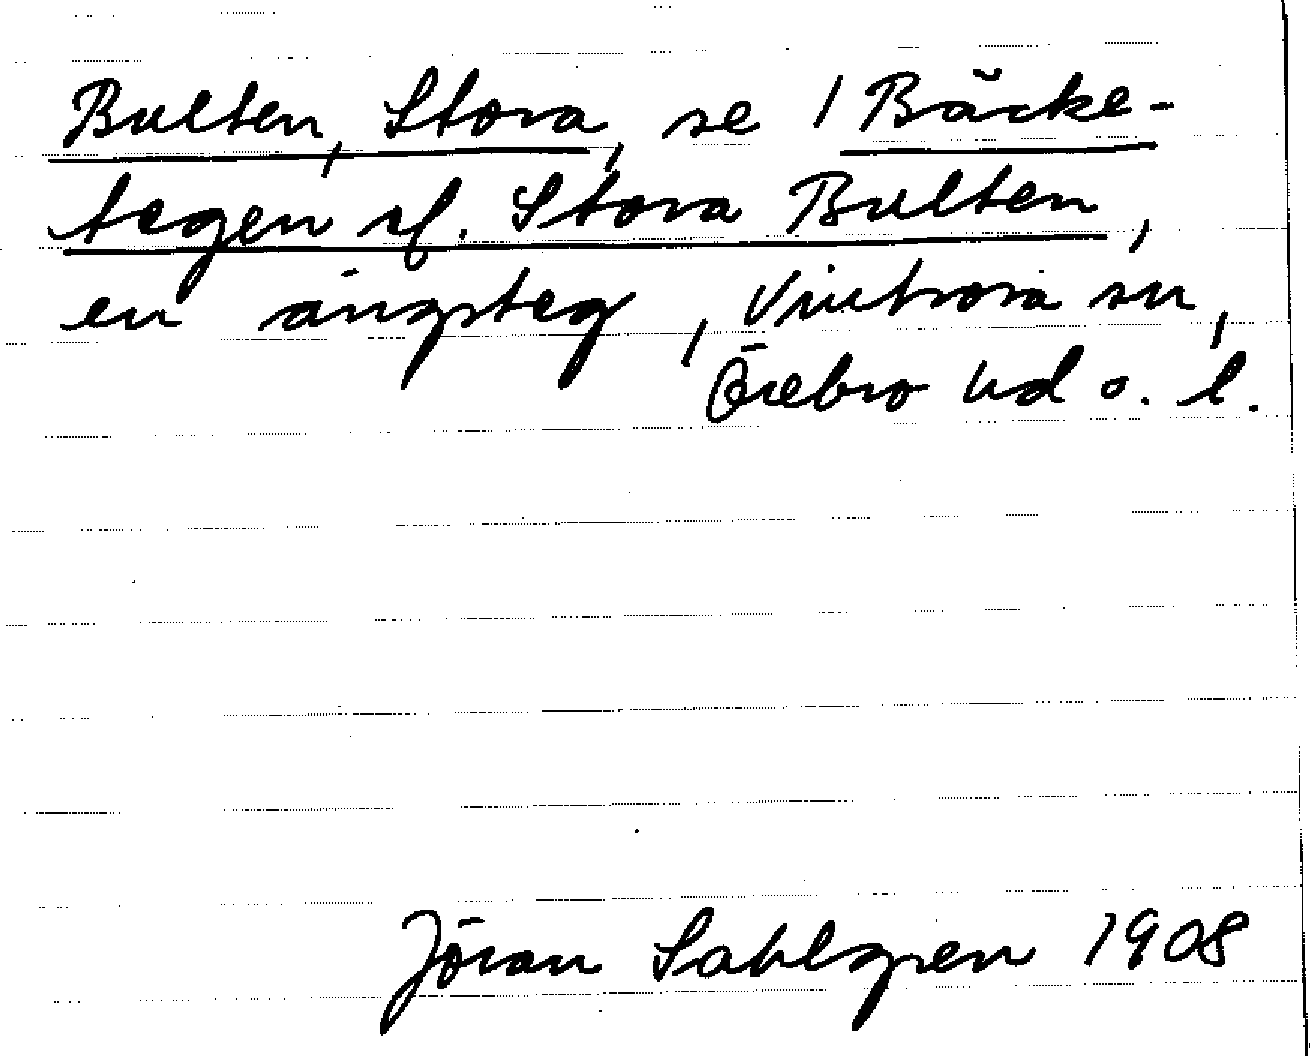 Bulten, Stora, se 1 Bäcke-
tegen el. Stora Bulten,
en ängsteg, Vintrosa sn,
Örebro hd o. l.
Jöran Sahlgren 1908